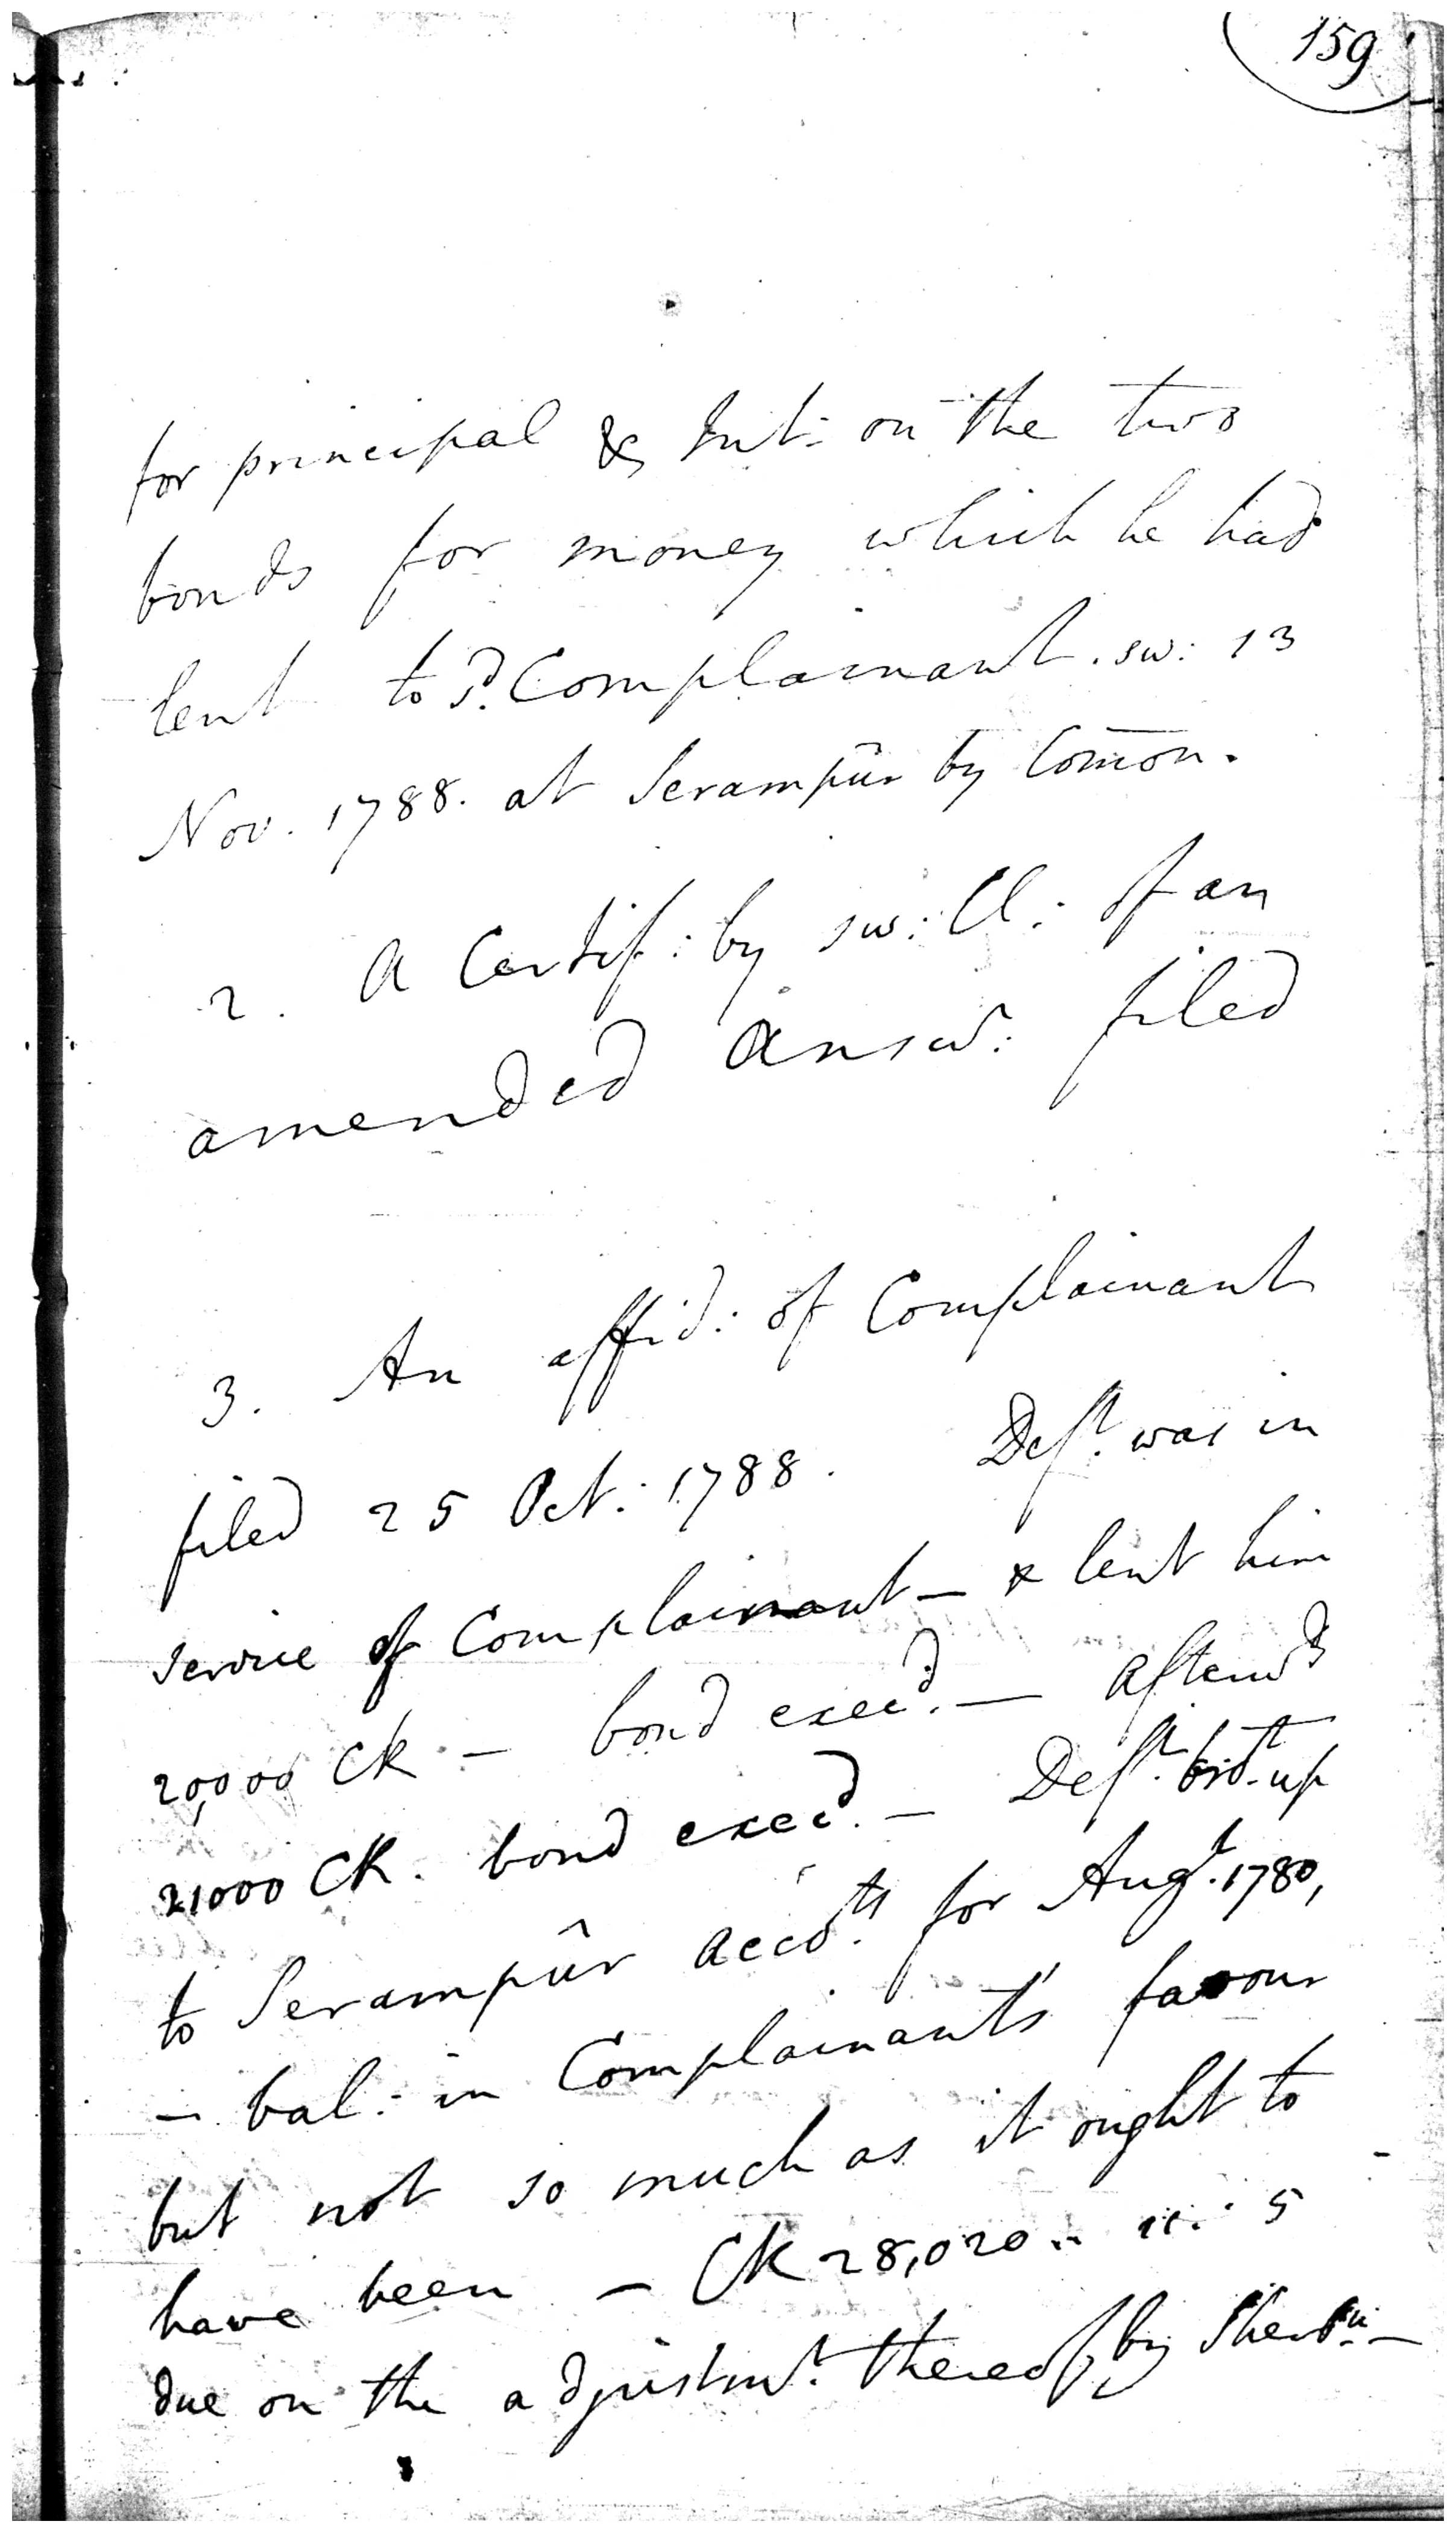 159
for principal & Int: on the two
bonds for money which he had
lent to sd. Complainant. sw: 13
Nov. 1788. at Serampûr by Com̄on.
2. A Certif: by sw: Cl: of an
amended Answr: filed
3. An affid: of Complainant
filed 25 Oct: 1788. Deft. was in
service of Complainant — & lent him
20,000 CR — bond execd. — Afterwds
21000 CR. bond execd. — Deft. brot. up
to Serampûr Accots. for Augt. 1780,
— bal: in Complainant's favour
but not so much as it ought to
have been — CR 28,020 .. 11 : 5
due on the adjustmt. thereof, by